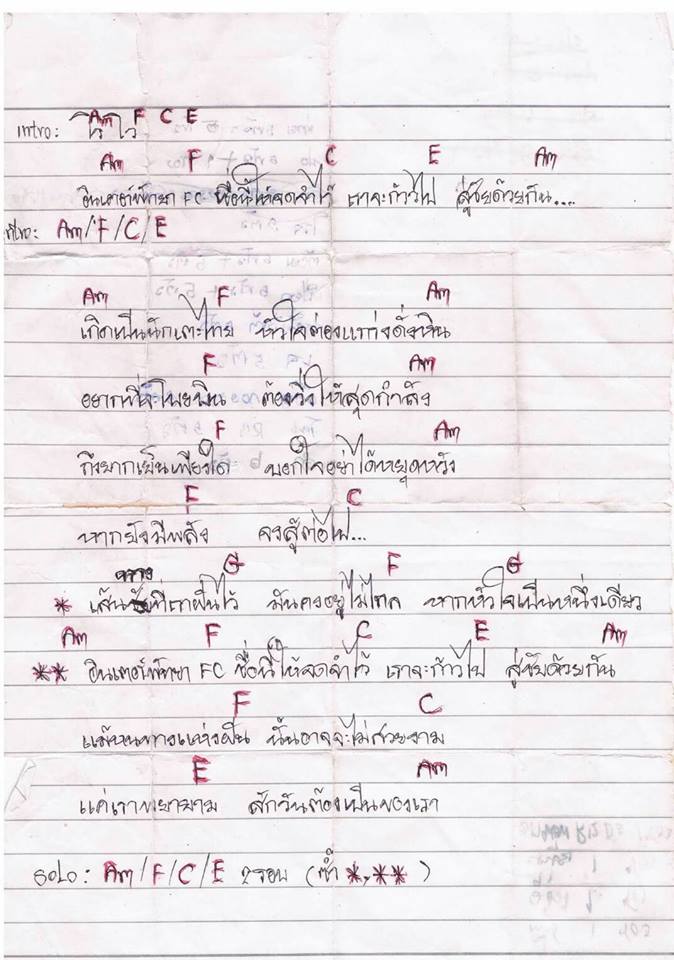 Am F C E
Intro: โว้ โว่
Am F C E Am
อินเตอร์พัทยา FC ชื่อนี้ให้จดจำไว้ เราจะก้าวไป สู่ชัยด้วยกัน....
Intro: Am/F/C/E
Am F Am
เกิดเป็นนักเตะไทย หัวใจต้องแกร่งดั่งหิน
F Am
อยากที่จะโผยบิน ต้องวิ่งให้สุดกำลัง
F Am
ถึงยากเย็นเพียงใด บอกใจอย่าได้หยุดหวัง
F C
หากยังมีพลัง จงสู้ต่อไป...
G F G
* เส้นทางที่เราฝันไว้ มันคงอยู่ไม่ไกล หากหัวใจเป็นหนึ่งเดียว
Am F C E Am
** อินเตอร์พัทยา FC ชื่อนี้ให้จดจำไว้ เราจะก้าวไป สู่ชัยด้วยกัน
F C
แม้หนทางแห่งฝัน นั้นอาจจะไม่สวยงาม
E Am
แค่เราพยายาม สักวันต้องเป็นของเรา
SOLO: Am/F/C/E 2รอบ (ซ้ำ *,**)